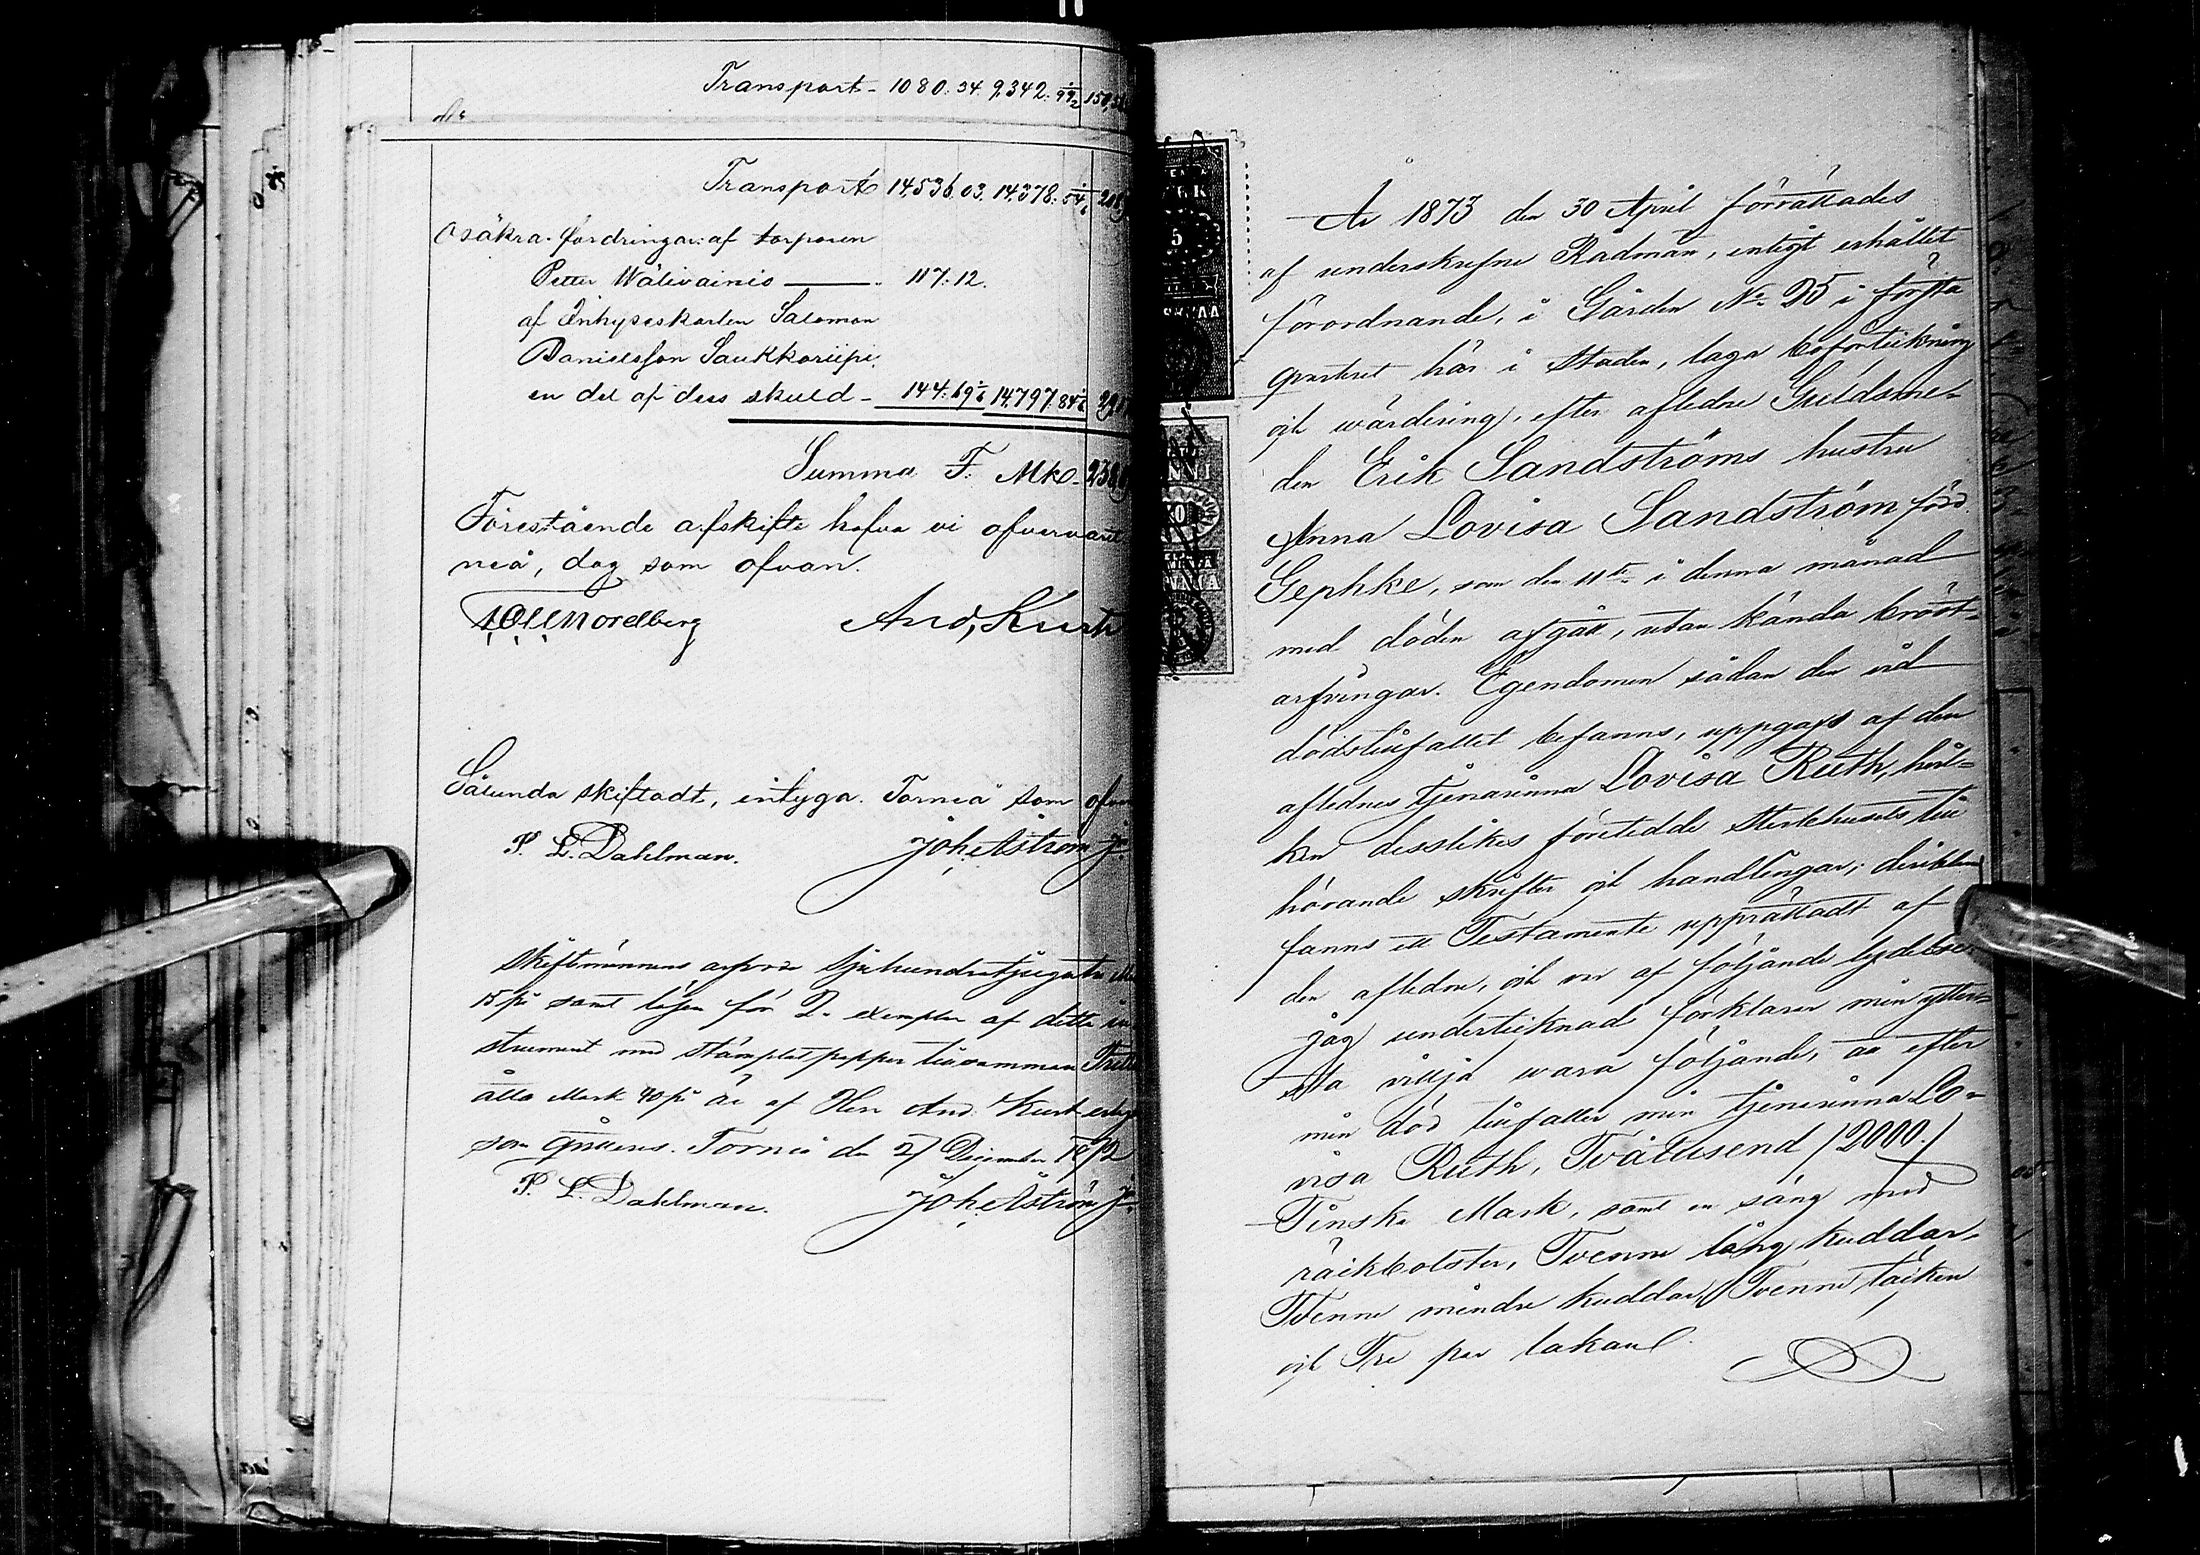 Transport - 1080. 54. 9,342.
Transport 14,536. 03. 14,378. 54
Osäkra fordringar: af torparen
Petter Wälivainio — 117. 12.
af Inhyseskarlen Salomon
Danielsson Saukkoriipi,
en del af dess skuld - 144. 69 14,797. 84
Summa F. Mk -
Förestående afskifte hafva vi öfvervarit
neå, dag som ofvan.
Nordberg And, Kurth
Sålunda skiftadt, intyga. Torneå som ofvan
P. L. Dahlman. Joh. Åström Jr.
Skiftmännens arfvode Sjuhundratjugotre
15 pi samt lösen för 2 exemplar af detta in
strument med stämplat papper tillsamman
åtta Mark 40 pi är af Herr And. Kurth
som qvitteras. Torneå den 27 December 1872
P. L. Dahlman. Joh. Åström Jr.
År 1873 den 30 April förrättades
af underskrefne Rådman, enligt erhållet
förordnande, i Gården No 25 i första
qvarteret här i Staden, laga boförteckning
och wärdering, efter aflidne Guldsme-
den Erik Sandströms hustru
Anna Lovisa Sandström född
Gephke, som den 11te i denna månad
med döden afgått, utan kända bröst-
arfvingar. Egendomen sådan den vid
dödstillfället befanns, uppgafs af den
aflidnes tjenarinna Lovisa Ruth, hvil-
ken desslikes företedde Sterbhusets till
hörande skrifter och handlingar; deribland
fanns ett Testamente upprättadt af
den aflidne, och var af följande lydelse:
Jag undertecknad förklarar min ytter-
sta vilja wara följande, att efter
min död tillfaller min tjenarinna Lo-
visa Ruth, Tvåtusend /2000./
Finska Mark, samt en säng med
räckbolster, Tvenne lång kuddar,
Tvenne mindre kuddar, Tvenne täcken
och Tre par lakan.